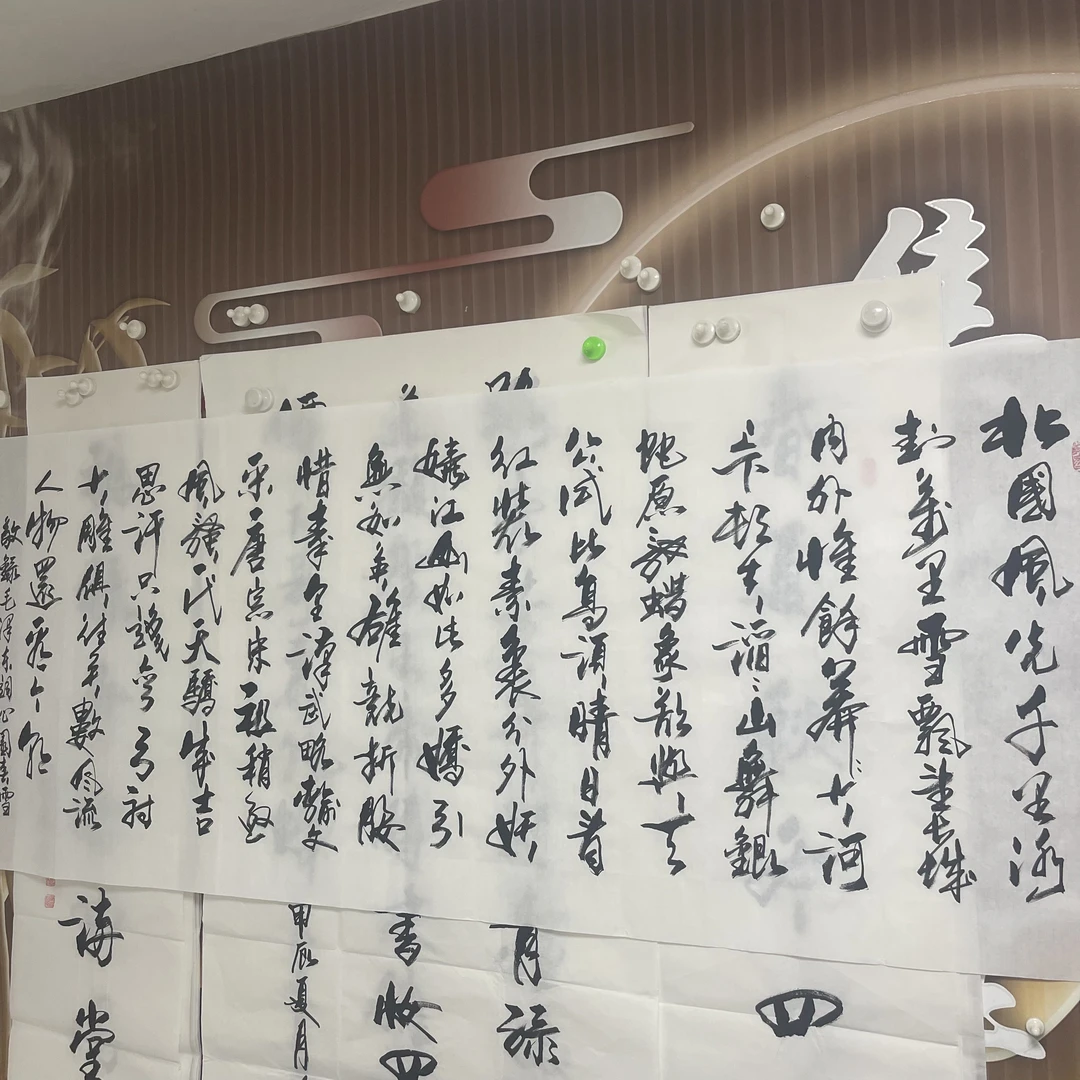 北國風光千里冰
封萬里雪飄望長城
内外惟餘莽〻大河
上下頓失滔〻山舞銀
蛇原馳蠟象欲與天
公試比高須晴日看
红裝素裹分外妖
嬈江山如此多嬌引
無數英雄競折腰
惜秦皇漢武略輸文
采唐宗宋祖稍遜
風騷一代天驕成吉
思汗只識彎弓射
大雕俱往矣數風流
人物還看今朝
敬錄毛澤東詞沁園春雪
佳
四
月
四
甲辰夏月
講堂